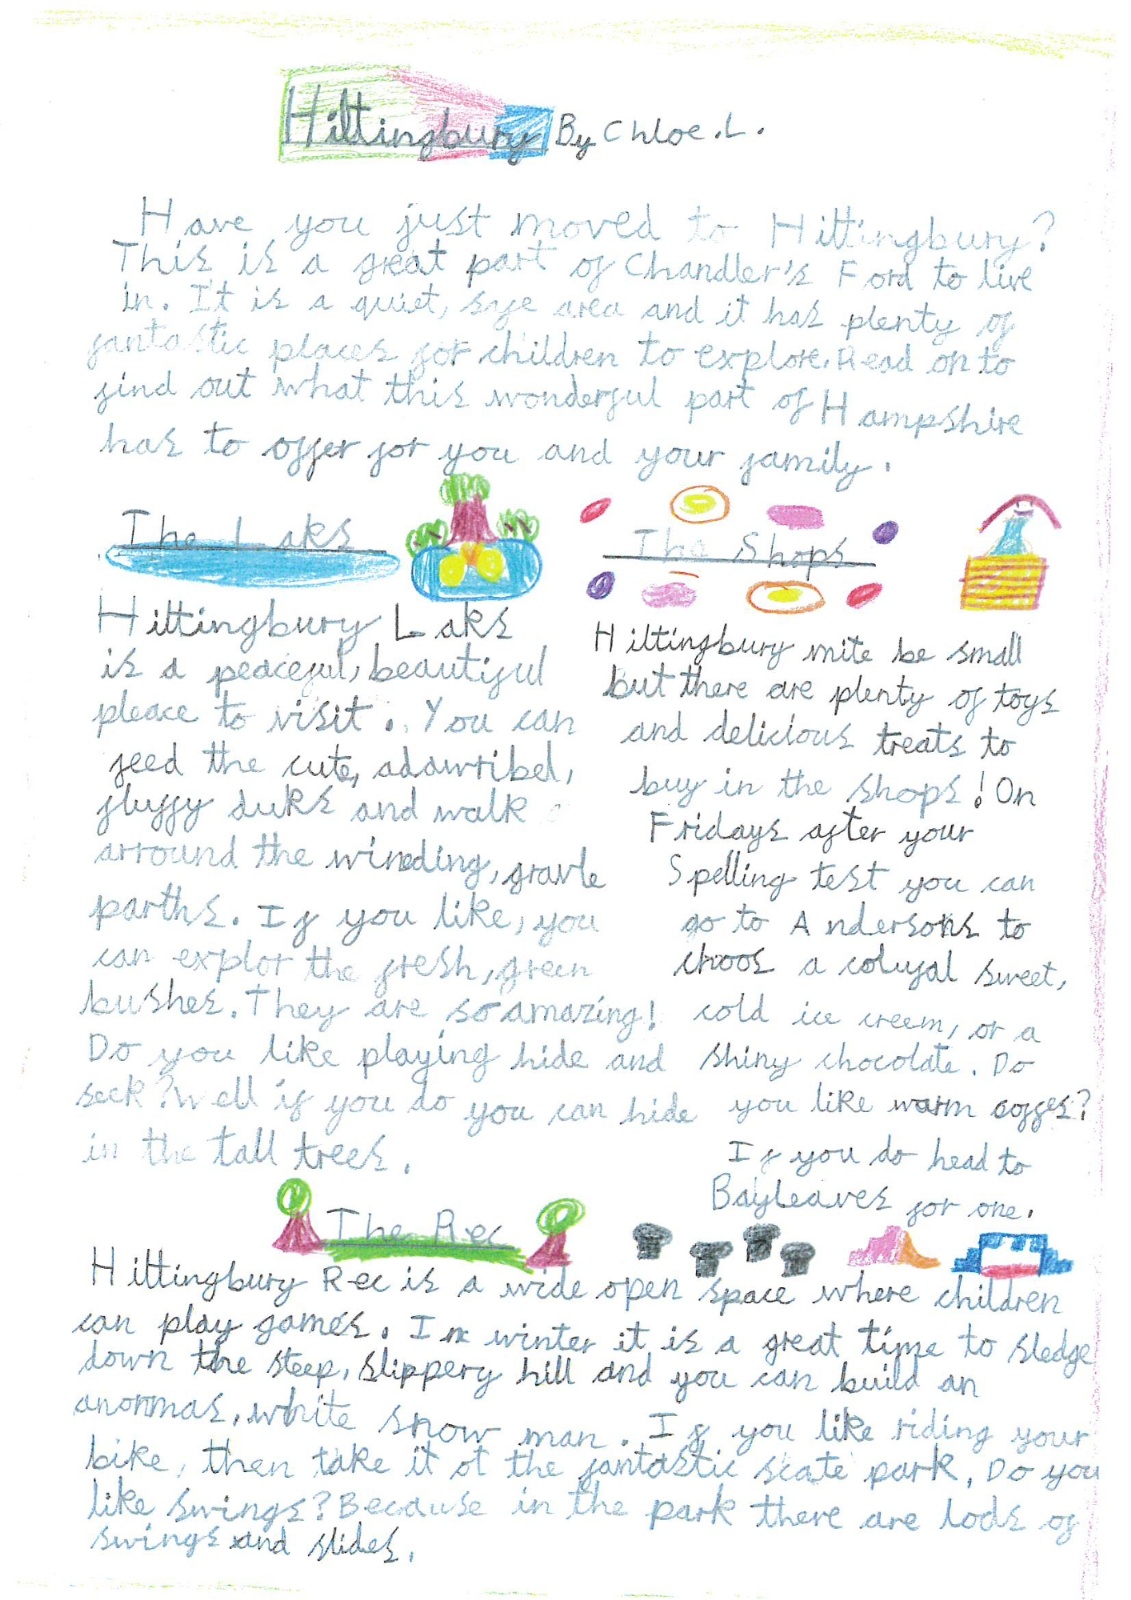 Hiltingbury By Chloe.L.
Have you just moved to Hiltingbury?
This is a great part of Chandler's Ford to live
in. It is a quiet, saye area and it has plenty of
fantastic places for children to explore. Read on to
find out what this wonderful part of Hampshire
has to offer for you and your family.
The Laks
Hiltingbury Laks
is a peaceful, beautiful
pleace to visit. You can
feed the cute, adawribel,
fluffy duks and walk
arround the winding, gravle
parths. If you like, you
can explor the fresh, green
bushes. They are so amazing!
Do you like playing hide and
seek? Well if you do you can hide
in the tall trees.
The Shops
Hiltingbury mite be small
but there are plenty of toys
and delicious treats to
buy in the shops! On
Fridays after your
Spelling test you can
go to Andersons to
choos a colufal sweet,
cold ice creem, or a
shiny chocolate. Do
you like warm coffes?
If you do head to
Bayleaves for one.
The Rec
Hiltingbury Rec is a wide open space where children
can play games. In winter it is a great time to sledge
down the steep, slippery hill and you can build an
anormas, white snow man. If you like riding your
bike, then take it ot the fantastic scate park. Do you
like swings? Because in the park there are lods of
swings and slides.